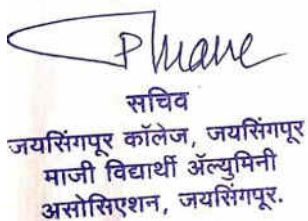 सचिव
जयसिंगपूर कॉलेज, जयसिंगपूर
माजी विद्यार्थी ॲल्युमिनी
असोसिएशन, जयसिंगपूर.